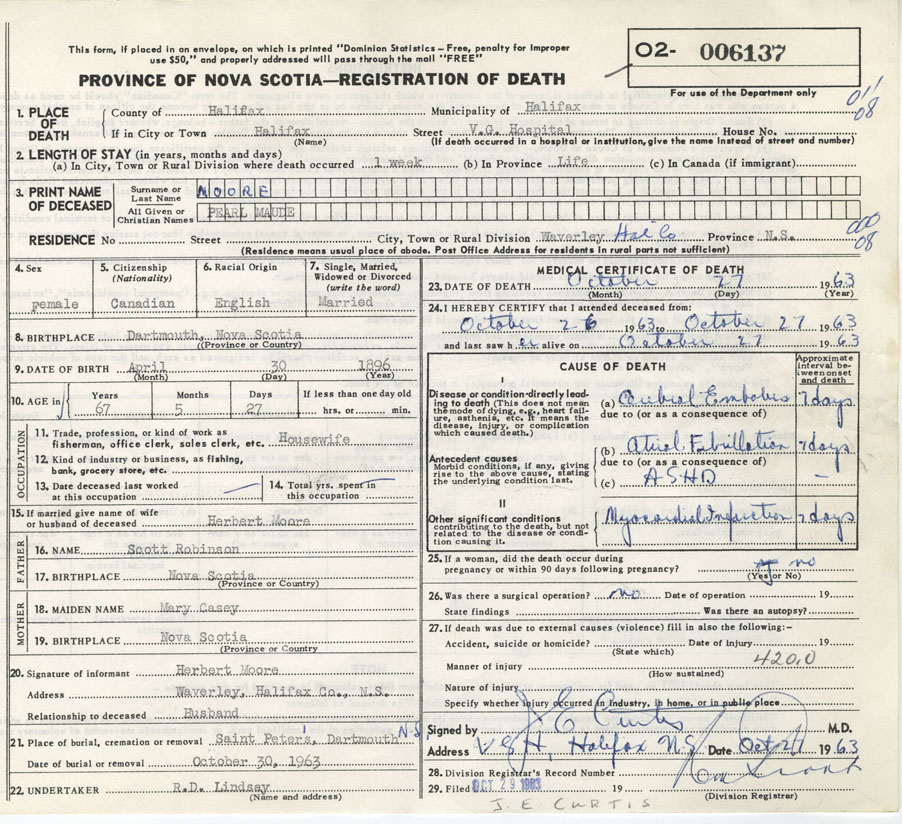 This form, if placed in an envelope, on which is printed "Dominion Statistics – Free, penalty for improper
use $50," and properly addressed will pass through the mail "FREE"
PROVINCE OF NOVA SCOTIA—REGISTRATION OF DEATH
O2- 006137
For use of the Department only
011
08
1. PLACE OF DEATH
County of Halifax Municipality of Halifax
If in City or Town Halifax Street V.G. Hospital House No.
(Name) (If death occurred in a hospital or institution, give the name instead of street and number)
2. LENGTH OF STAY (in years, months and days)
(a) In City, Town or Rural Division where death occurred 1 week (b) In Province Life (c) In Canada (if immigrant)
3. PRINT NAME OF DECEASED
Surname or Last Name MOORE
All Given or Christian Names PEARL MAUDE
000
08
RESIDENCE No Street City, Town or Rural Division Waverley Hal Co Province N.S.
(Residence means usual place of abode. Post Office Address for residents in rural parts not sufficient)
4. Sex Female
5. Citizenship (Nationality) Canadian
6. Racial Origin English
7. Single, Married, Widowed or Divorced (write the word) Married
8. BIRTHPLACE Dartmouth, Nova Scotia
(Province or Country)
9. DATE OF BIRTH April 30 1896
(Month) (Day) (Year)
10. AGE in Years 67 Months 5 Days 27 If less than one day old hrs. or min.
OCCUPATION
11. Trade, profession, or kind of work as fisherman, office clerk, sales clerk, etc. Housewife
12. Kind of industry or business, as fishing, bank, grocery store, etc.
13. Date deceased last worked at this occupation
14. Total yrs. spent in this occupation
15. If married give name of wife or husband of deceased Herbert Moore
FATHER
16. NAME Scott Robinson
17. BIRTHPLACE Nova Scotia
(Province or Country)
MOTHER
18. MAIDEN NAME Mary Casey
19. BIRTHPLACE Nova Scotia
(Province or Country)
20. Signature of informant Herbert Moore
Address Waverley, Halifax Co., N.S.
Relationship to deceased Husband
21. Place of burial, cremation or removal Saint Peter's, Dartmouth N.S
Date of burial or removal October 30, 1963
22. UNDERTAKER R.D. Lindsay
(Name and address)
MEDICAL CERTIFICATE OF DEATH
23. DATE OF DEATH October 27 1963
(Month) (Day) (Year)
24. I HEREBY CERTIFY that I attended deceased from:
October 26 1963 to October 27 1963
and last saw h er alive on October 27 1963
CAUSE OF DEATH
Approximate interval between onset and death
I
Disease or condition directly leading to death (This does not mean the mode of dying, e.g., heart failure, asthenia, etc. It means the disease, injury, or complication which caused death.)
(a) Cerebral Embolus 7 days
due to (or as a consequence of)
Antecedent causes
Morbid conditions, if any, giving rise to the above cause, stating the underlying condition last.
(b) Atrial Fibrillation 7 days
due to (or as a consequence of)
(c) ASHD –
II
Other significant conditions
contributing to the death, but not related to the disease or condition causing it.
Myocardial Infarction 7 days
25. If a woman, did the death occur during
pregnancy or within 90 days following pregnancy? no
(Yes or No)
26. Was there a surgical operation? no Date of operation 19
State findings Was there an autopsy?
27. If death was due to external causes (violence) fill in also the following:–
Accident, suicide or homicide? Date of injury 19
(State which)
Manner of injury 420.0
(How sustained)
Nature of injury
Specify whether injury occurred in industry, in home, or in public place
Signed by J E Curtis M.D.
Address V.G.H, Halifax N.S Date Oct 27 1963
28. Division Registrar's Record Number
29. Filed OCT 29 1963 19
(Division Registrar)
J. E CURTIS